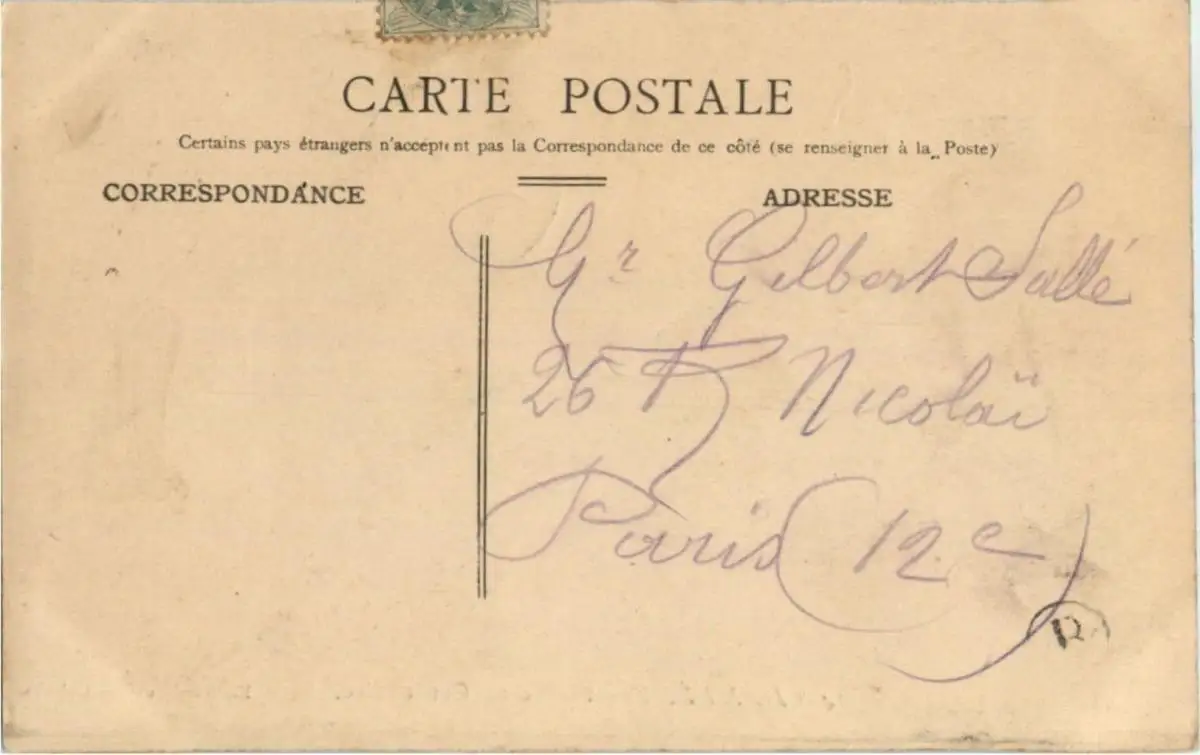 CARTE POSTALE
Certains pays étrangers n'acceptent pas la Correspondance de ce côté (se renseigner à la Poste)
CORRESPONDANCE
ADRESSE
Mr Gilbert Sallé
26 R Nicolaï
Paris (12e)
12